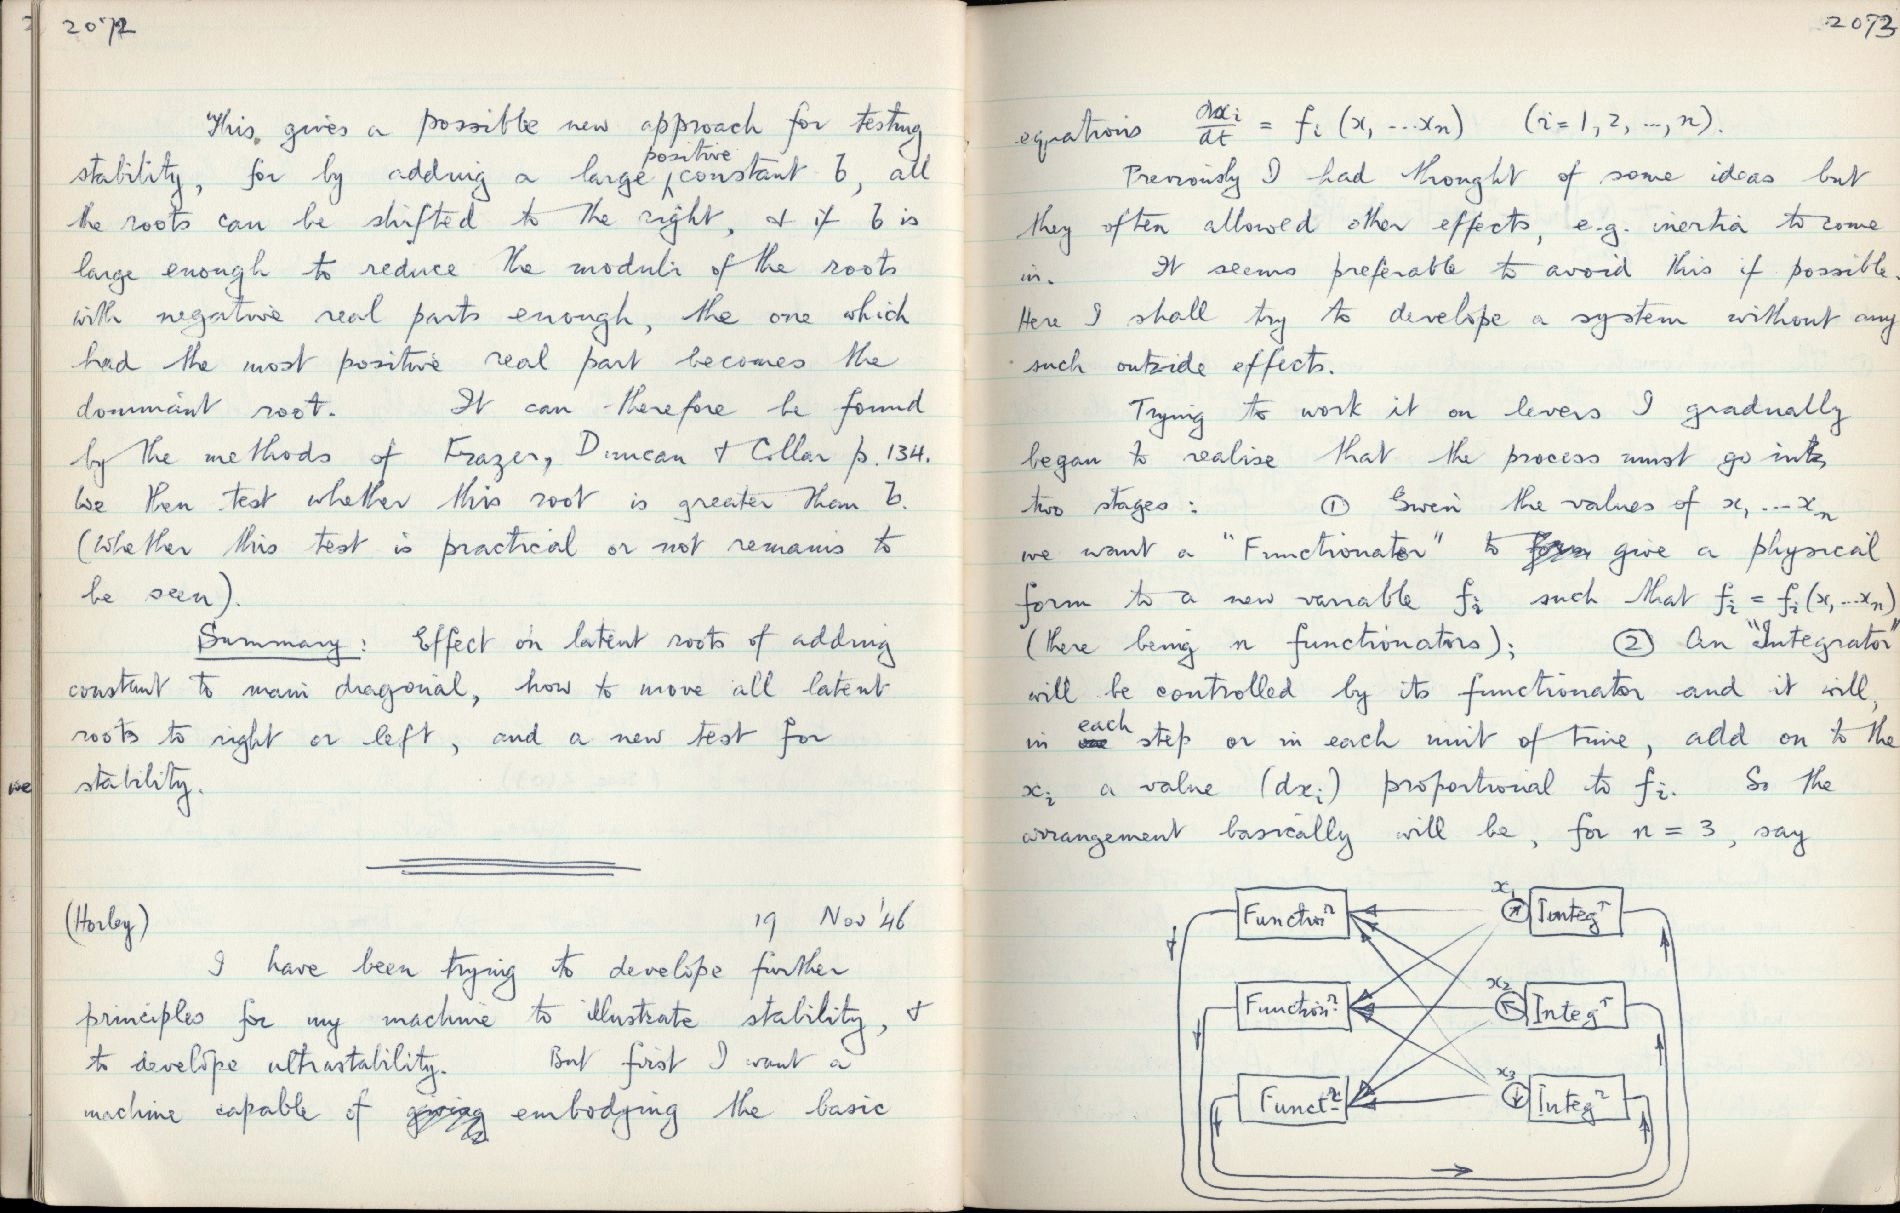 2072
This gives a possible new approach for testing
positive
stability, for by adding a large constant b, all
the roots can be shifted to the right, & if b is
large enough to reduce the moduli of the roots
with negative real parts enough, the one which
had the most positive real part becomes the
dominant root. It can therefore be found
by the methods of Frazer, Duncan & Collar p. 134.
We then test whether this root is greater than b.
(Whether this test is practical or not remains to
be seen).
Summary: Effect on latent roots of adding
constant to main diagonal, how to move all latent
roots to right or left, and a new test for
we
stability.
(Horley) 19 Nov '46
I have been trying to develope further
principles for my machine to illustrate stability, &
to develope ultrastability. But first I want a
machine capable of giving embodying the basic
2073
equations dxi/dt = fi (x1 ... xn) (i = 1, 2, ..., n).
Previously I had thought of some ideas but
they often allowed other effects, e.g. inertia to come
in. It seems preferable to avoid this if possible.
Here I shall try to develope a system without any
such outside effects.
Trying to work it on levers I gradually
began to realise that the process must go into
two stages: ① Given the values of x1 ... xn
we want a "Functionator" to form give a physical
form to a new variable fi such that fi = fi(x1 ... xn)
(there being n functionators); ② An "Integrator"
will be controlled by its functionator and it will,
each
in one step or in each unit of time, add on to the
xi a value (dxi) proportional to fi. So the
arrangement basically will be, for n = 3, say
Functionr x1 Integr
Functionr x2 Integr
Functr x3 Integr